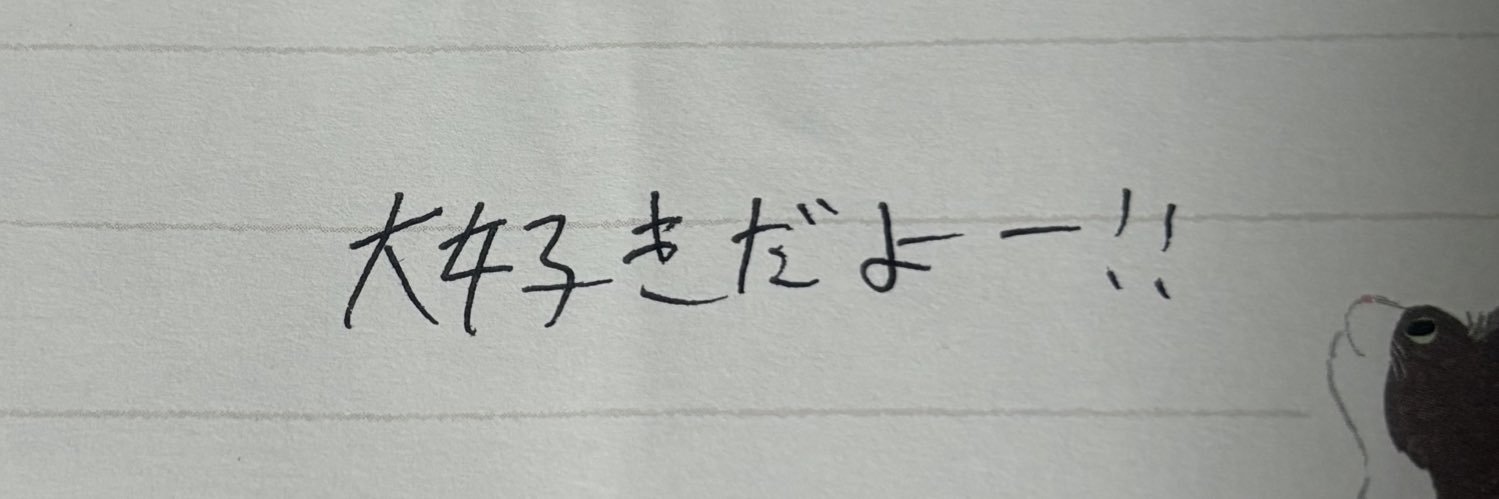 大好きだよー!!